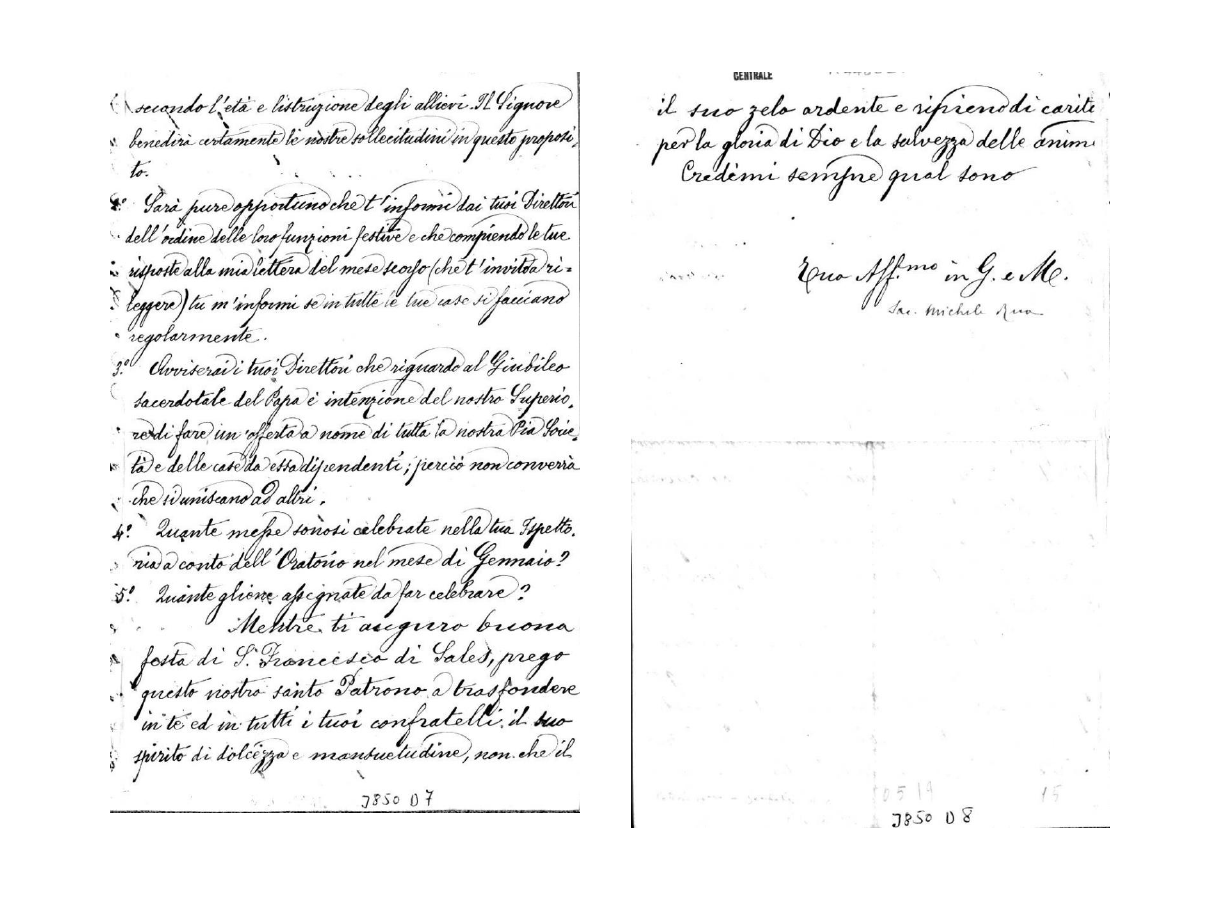 secondo l'età e l'istruzione degli allievi. Il Signore
benedirà certamente le nostre sollecitudini in questo proposi,
to.
2.° Sarà pure opportuno che t'informi dai tuoi Direttori
dell'ordine delle loro funzioni festive e che compiendo le tue
risposte alla mia lettera del mese scorso (che t'invito a ri=
leggere) tu m'informi se in tutte le tue case si facciano
regolarmente.
3.° Avviserai i tuoi Direttori che riguardo al Giubileo
sacerdotale del Papa è intenzione del nostro Superio,
re di fare un'offerta a nome di tutta la nostra Pia Socie,
tà e delle case da essa dipendenti; perciò non converrà
che si uniscano ad altri.
4.° Quante messe sonosi celebrate nella tua Ispetto,
ria a conto dell'Oratorio nel mese di Gennaio?
5.° Quante gliene assegnate da far celebrare?
Mentre ti auguro buona
festa di S. Francesco di Sales, prego
questo nostro santo Patrono a trasfondere
in te ed in tutti i tuoi confratelli il suo
spirito di dolcezza e mansuetudine, non che il
J850 D7
CENTRALE
il suo zelo ardente e ripieno di carità
per la gloria di Dio e la salvezza delle anim
Credimi sempre qual sono
Tuo Aff.mo in G. e M.
Sac. Michele Rua
0519
15
J850 D8